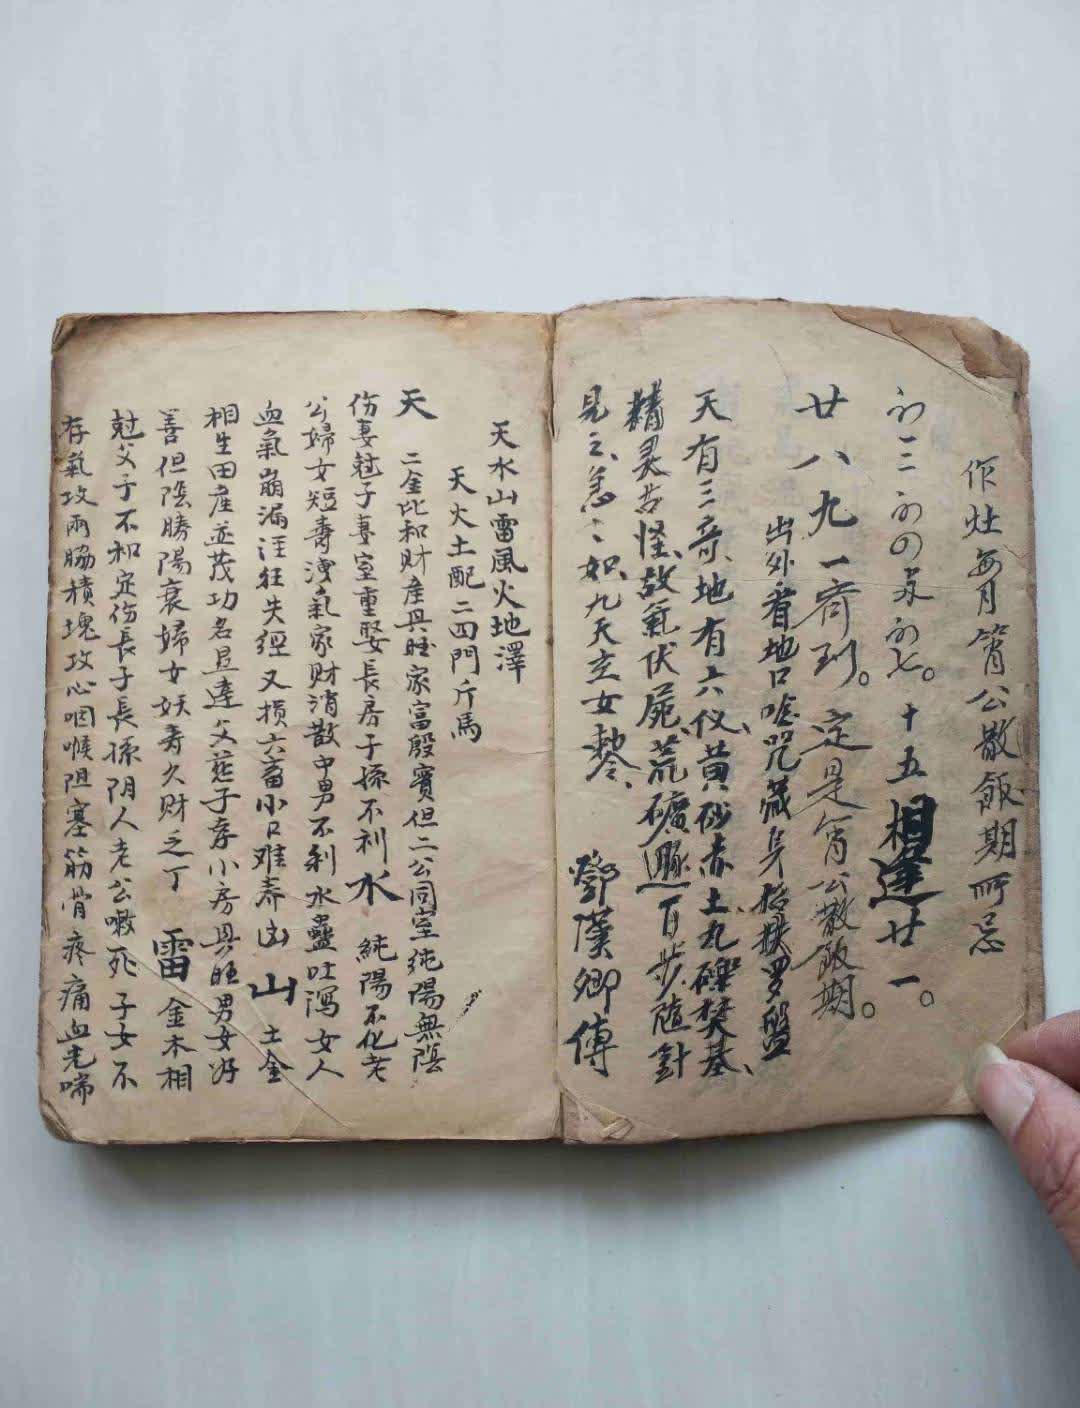 作灶每月宵公散飯期所忌
初三初四求初七。十五相逢廿一。
廿八九一齊到。定是宵公散飯期。
出外看地口唸咒藏身格挨罗盤
天有三奇、地有六仪、黄砂赤土、丸礫焚基、
精灵古怪、故氣伏屍、荒礦 百步、随針
見之、急〻如、九天玄女
鄧漢卿傳
天水山雷風火地澤
天火土配二四門斤馬
天 二金比和財產興旺家富殷實但二公同室純陽無陰
伤妻尅子妻室重娶長房子孫不利水 純陽不化老
公婦女短壽洩氣家财消散中男不利水蠱吐瀉女人
血氣崩漏 狂失經又损六畜小口难养凶山 土金
相生田產並茂功名显達父慈子孝小房興旺男女好
善但陰勝陽衰婦女妖寿久财乏丁 雷 金木相
尅父子不和定伤長子長孫阴人老公嗽死子女不
存氣攻兩脇積塊攻心咽喉阻塞筋骨疼痛血光喘